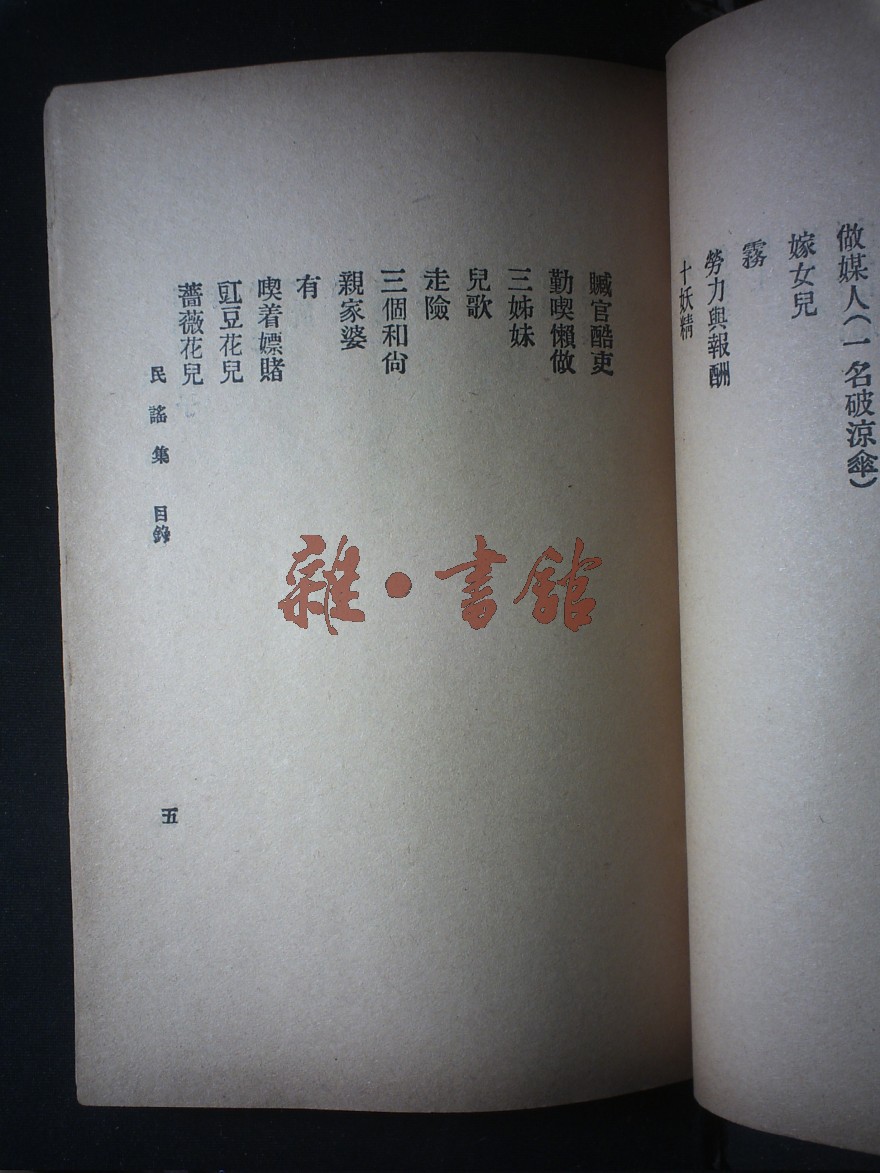 做媒人(一名破涼傘)
嫁女兒
霧
勞力與報酬
十妖精
贓官酷吏
勤喫懶做
三姊妹
兒歌
走險
三個和尙
親家婆
有
喫着嫖賭
豇豆花兒
薔薇花兒
民謠集 目錄
五
雜·書館